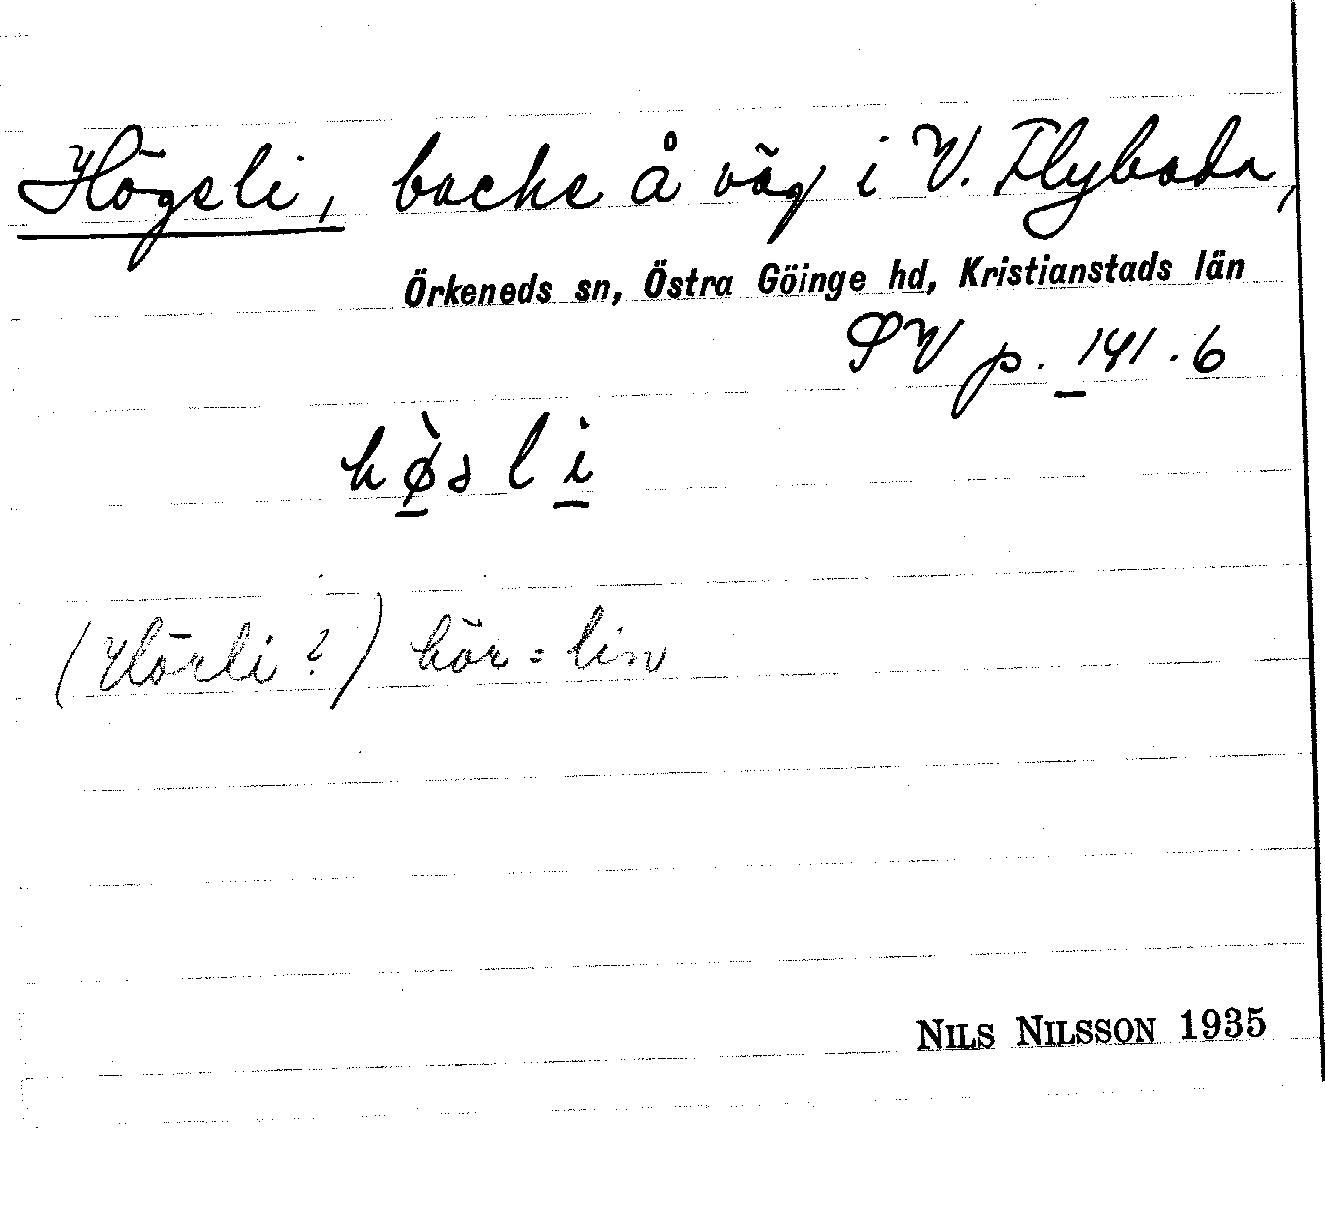 Högsli, backe å väg i V. Flyboda,
Örkeneds sn, Östra Göinge hd, Kristianstads län
SV p. 141.6
hø̀sli
(Hörli?) hör = lin
NILS NILSSON 1935